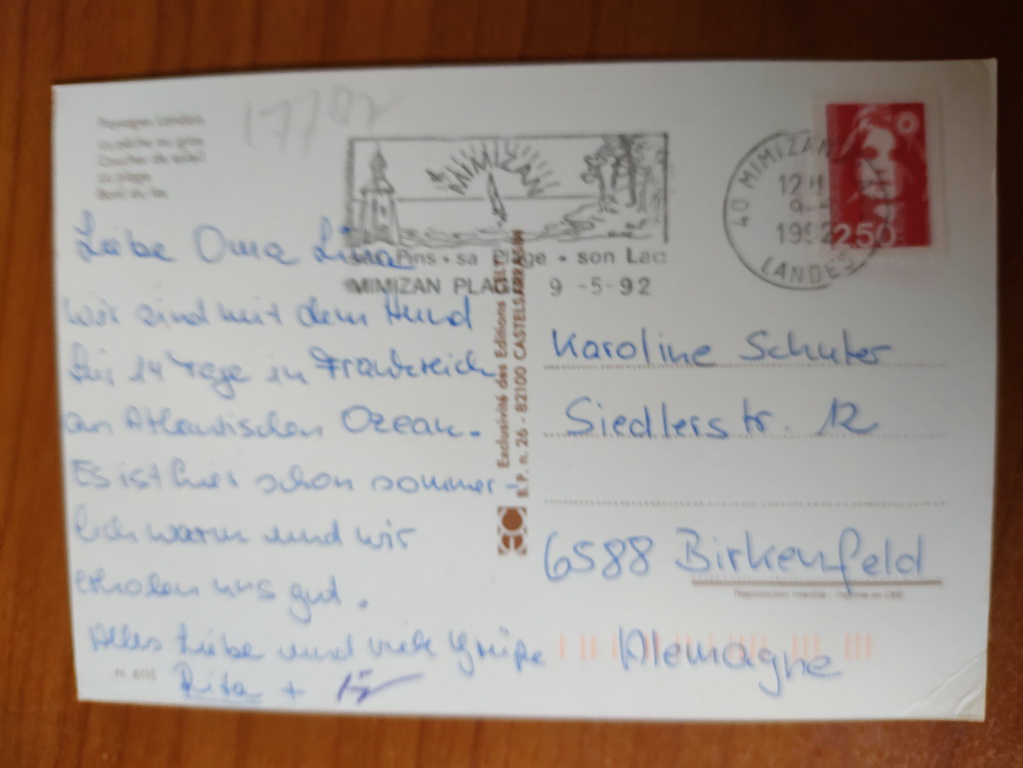 Paysages Landais
La pêche au gros
Coucher de soleil
La plage
Bord du lac
MIMIZAN
Pins • sa Plage • son Lac
MIMIZAN PLAGE 9 -5-92
40 MIMIZAN
12 H
9-5
1992
LANDES
2,50
Liebe Oma Lina
Wir sind mit dem Hund
für 14 Tage in Frankreich
am Atlantischen Ozean.
Es ist hier schon sommer-
lich warm und wir
erholen uns gut.
Alles Liebe und viele Grüße
Rita +
N. 6115
Exclusivité des Editions
B.P. n. 26 - 82100 CASTELSARRASIN
Karoline Schuker
Siedlerstr. 12
6588 Birkenfeld
Reproduction interdite -
Alemagne